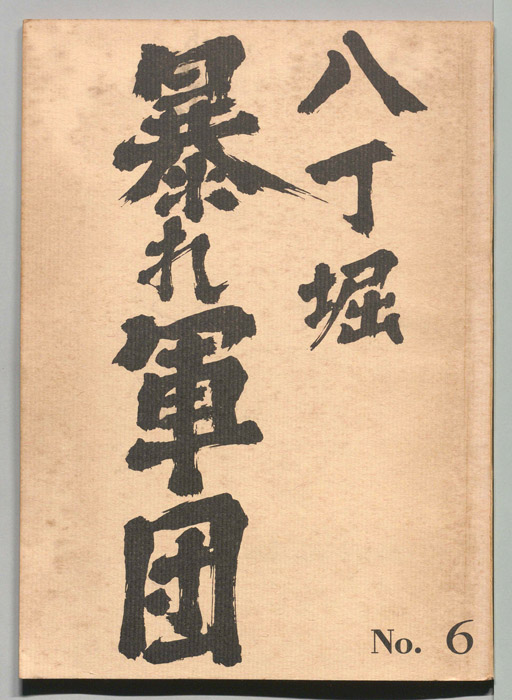 八丁堀
暴れ軍団
No. 6